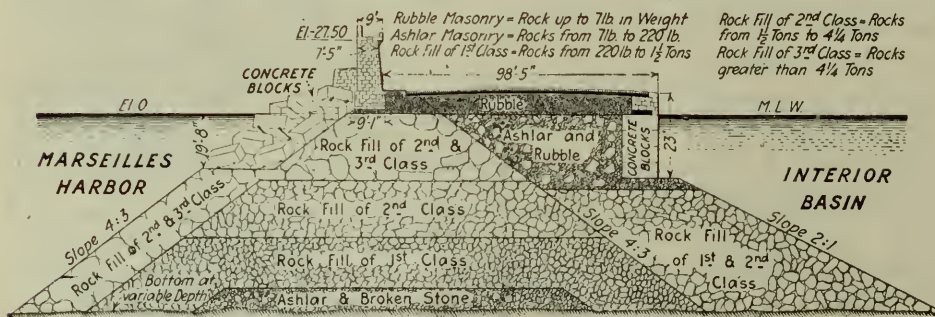 9'
El.-27.50
7'-5"
Rubble Masonry = Rock up to 7lb. in Weight
Ashlar Masonry = Rocks from 7lb. to 220 lb.
Rock Fill of 1st Class = Rocks from 220 lb to 1½ Tons
Rock Fill of 2nd Class = Rocks
from 1½ Tons to 4¼ Tons
Rock Fill of 3rd Class = Rocks
greater than 4¼ Tons
98'-5"
CONCRETE
BLOCKS
El 0
M.L.W.
Rubble
9'-1"
19'-8"
Rock Fill of 2nd &
3rd Class
Ashlar
and
Rubble
CONCRETE
BLOCKS
23'
MARSEILLES
HARBOR
INTERIOR
BASIN
Slope 4:3
Rock Fill of 2nd & 3rd Class
Rock Fill of 2nd Class
Slope 4:3
Rock Fill
of 1st & 2nd
Class
Slope 2:1
Rock Fill of 1st Class
Bottom at
variable Depth
Ashlar & Broken Stone